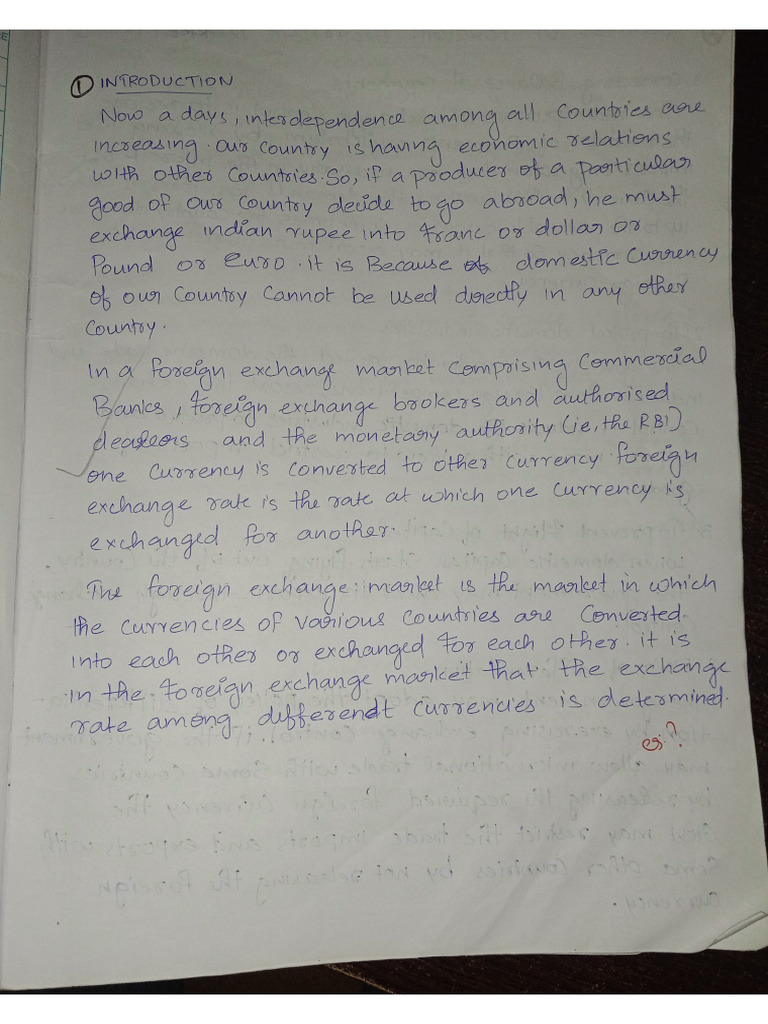 ① INTRODUCTION
Now a days, interdependence among all Countries are
increasing. our country is having economic relations
with other Countries. So, if a producer of a particular
good of our country decide to go abroad, he must
exchange indian rupee into franc or dollar or
Pound or Euro. it is Because domestic Currency
of our Country Cannot be used directly in any other
Country.
In a foreign exchange market comprising Commercial
Banks, foreign exchange brokers and authorised
dealers and the monetary authority (ie, the RBI)
one Currency is converted to other currency foreign
exchange rate is the rate at which one currency is
exchanged for another.
The foreign exchange market is the market in which
the currencies of various countries are Converted
into each other or exchanged for each other. it is
in the foreign exchange market that the exchange
rate among different currencies is determined.